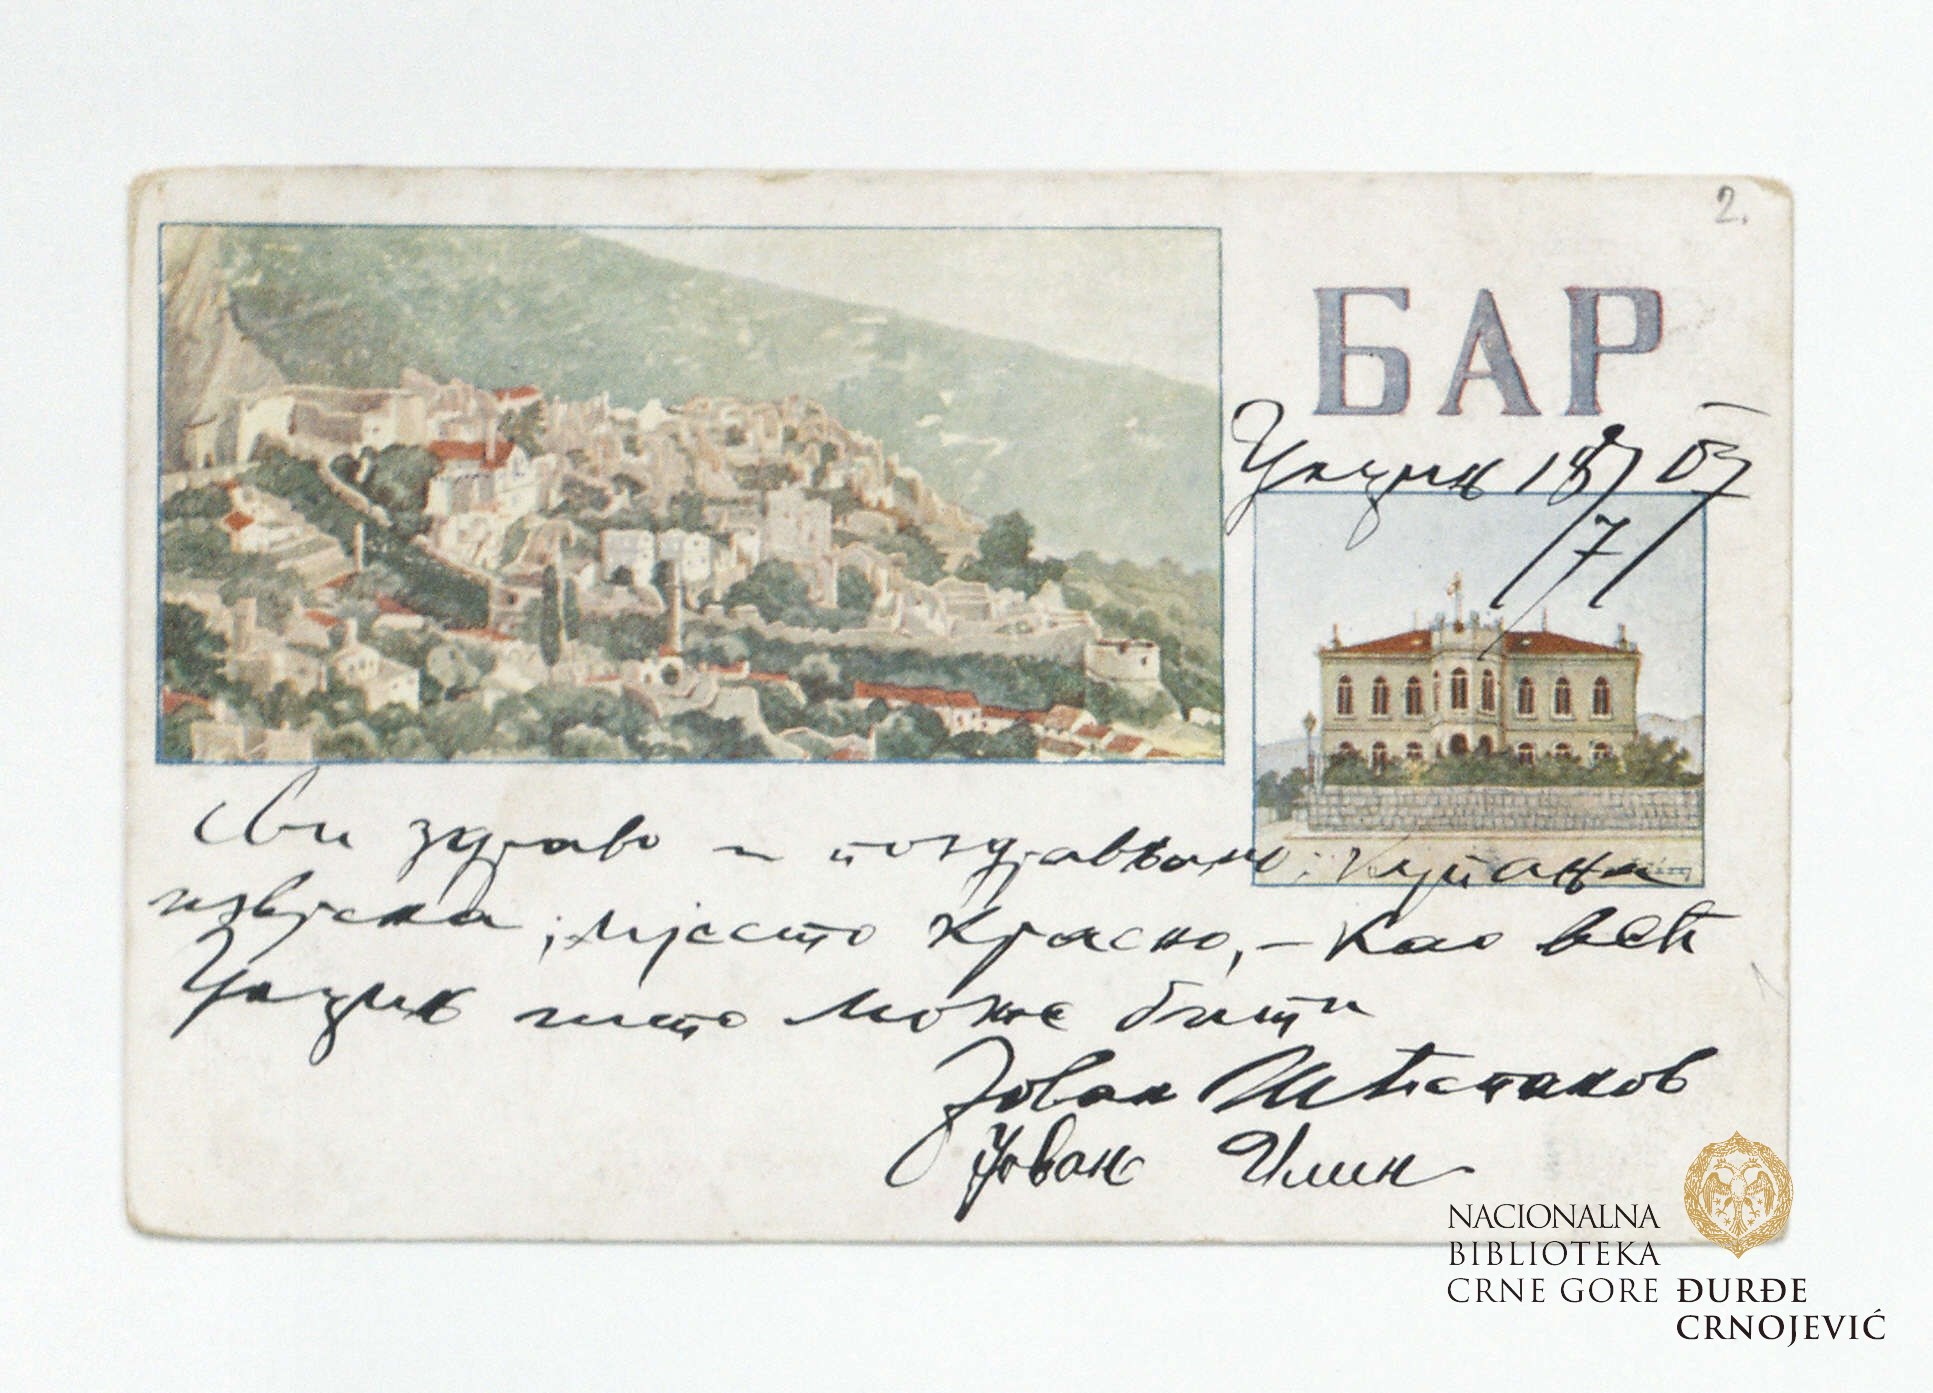 2.
БАР
Улцињ 18/7 03
Сви здраво и поздрављамо; купања
извјесна, мјесто красно, – као већ
Улцињ што може бити
Јован
Јован Илин
NACIONALNA
BIBLIOTEKA
CRNE GORE ĐURĐE
CRNOJEVIĆ